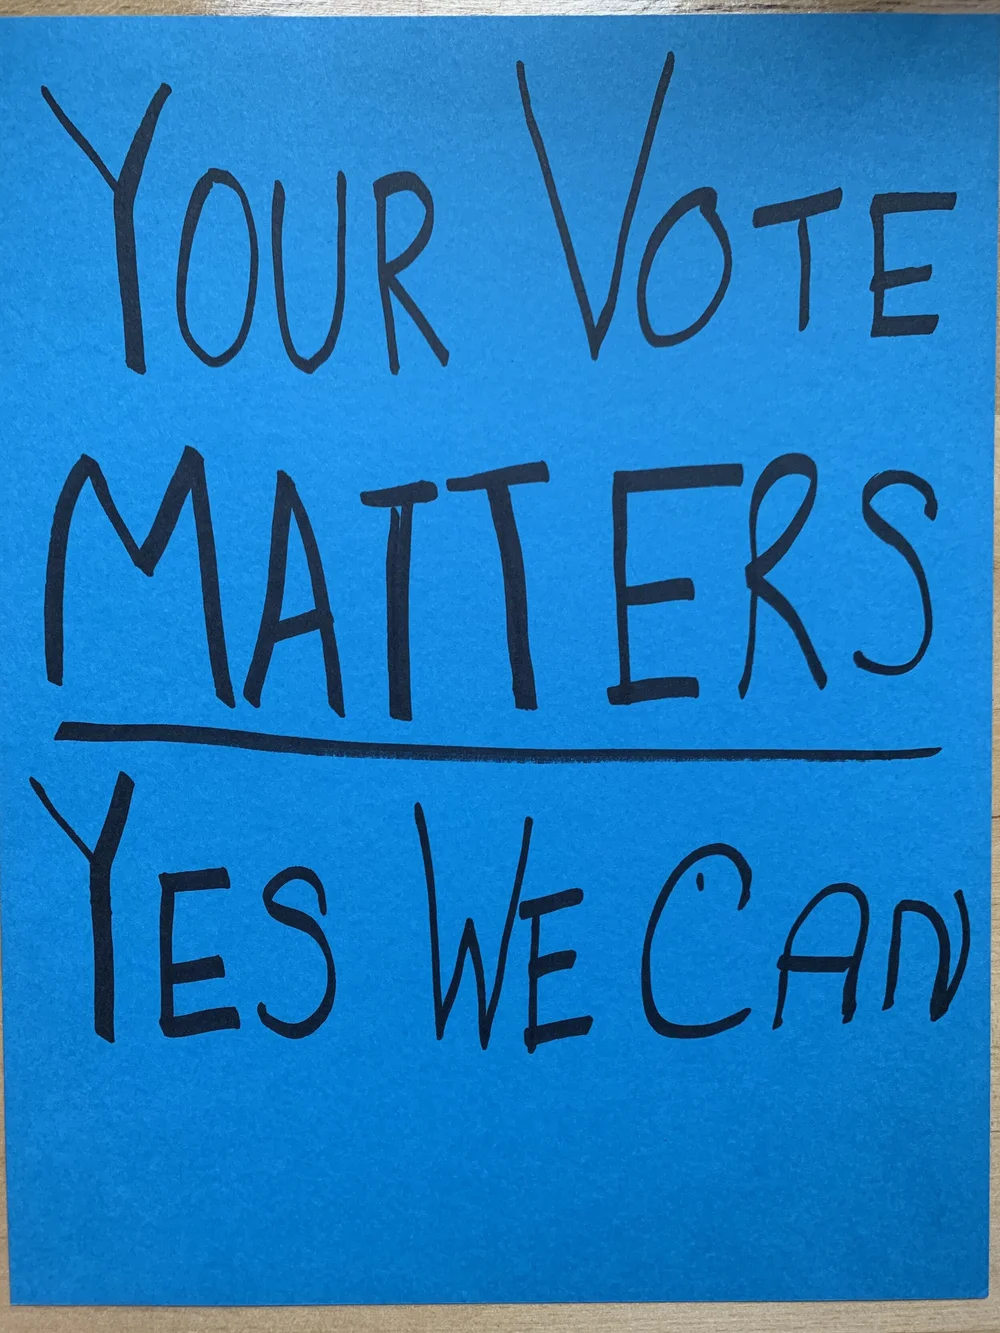 YOUR VOTE
MATTERS
YES WE CAN